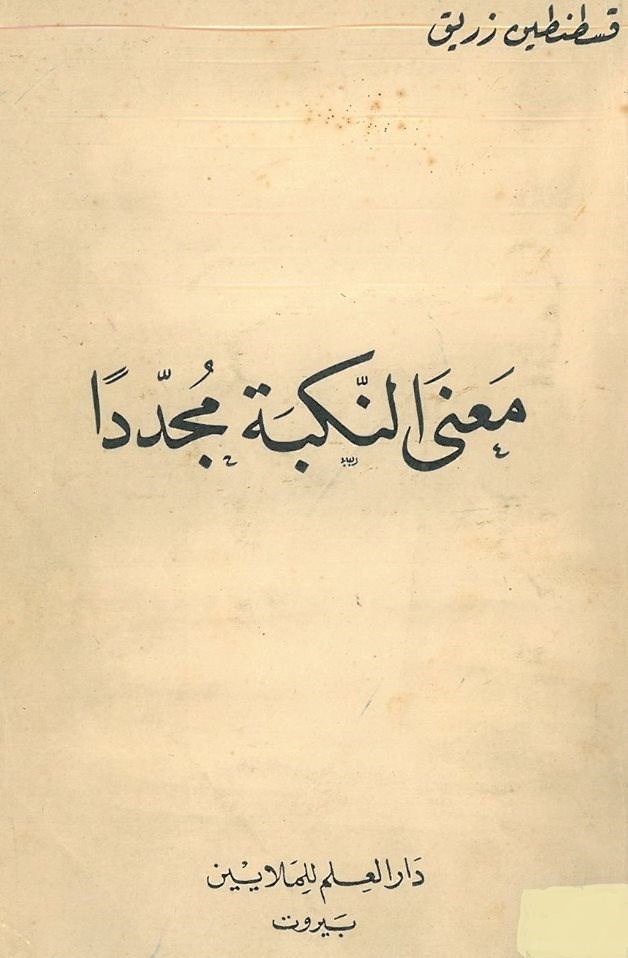 قسطنطين زريق
مَعنىَ النَّكبَة مُجدّدًا
دَار العِلم للِمَلايِين
بَيروت